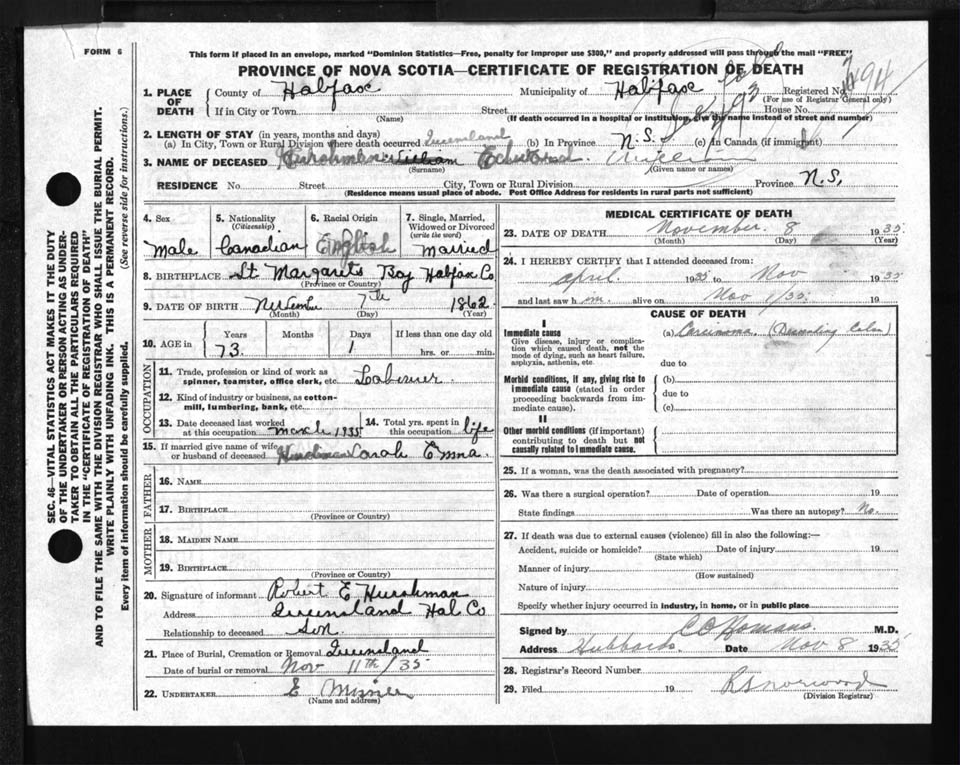 FORM 6
This form if placed in an envelope, marked "Dominion Statistics—Free, penalty for improper use $300," and properly addressed will pass through the mail "FREE"
PROVINCE OF NOVA SCOTIA—CERTIFICATE OF REGISTRATION OF DEATH
1. PLACE OF DEATH County of Halifax Municipality of Halifax Registered No.
(For use of Registrar General only)
If in City or Town Street House No.
(Name) (If death occurred in a hospital or institution, give the name instead of street and number)
2. LENGTH OF STAY (in years, months and days)
(a) In City, Town or Rural Division where death occurred Queensland (b) In Province N.S. (c) in Canada (if immigrant)
3. NAME OF DECEASED Hurshman William Edward William
(Surname) (Given name or names)
RESIDENCE No. Street City, Town or Rural Division Province N.S,
(Residence means usual place of abode. Post Office Address for residents in rural parts not sufficient)
4. Sex 5. Nationality (Citizenship) 6. Racial Origin 7. Single, Married, Widowed or Divorced (write the word)
Male Canadian English Married
8. BIRTHPLACE St. Margarets Bay Halifax Co
(Province or Country)
9. DATE OF BIRTH 7th 1862
(Month) (Day) (Year)
10. AGE in Years Months Days If less than one day old
73 1 hrs. or min.
OCCUPATION
11. Trade, profession or kind of work as spinner, teamster, office clerk, etc. Labourer
12. Kind of industry or business, as cotton-mill, lumbering, bank, etc.
13. Date deceased last worked at this occupation March 1935 14. Total yrs. spent in this occupation life
15. If married give name of wife or husband of deceased Hurshman Sarah Emma.
FATHER
16. NAME
17. BIRTHPLACE
(Province or Country)
MOTHER
18. MAIDEN NAME
19. BIRTHPLACE
(Province or Country)
20. Signature of informant Robert E Hurshman
Address Queensland Hal Co
Relationship to deceased Son
21. Place of Burial, Cremation or Removal Queensland
Date of burial or removal Nov 11th / 35
22. UNDERTAKER E
(Name and address)
MEDICAL CERTIFICATE OF DEATH
23. DATE OF DEATH November 8 1935
(Month) (Day) (Year)
24. I HEREBY CERTIFY that I attended deceased from:
April 1935 to Nov 1935
and last saw h m alive on Nov 1/35 19
CAUSE OF DEATH
I
Immediate cause (a) Carcinoma (Descending Colon)
Give disease, injury or complication which caused death, not the mode of dying, such as heart failure, asphyxia, asthenia, etc.
due to
Morbid conditions, if any, giving rise to immediate cause (stated in order proceeding backwards from immediate cause).
(b)
due to
(c)
II
Other morbid conditions (if important) contributing to death but not causally related to immediate cause.
25. If a woman, was the death associated with pregnancy?
26. Was there a surgical operation? Date of operation 19
State findings Was there an autopsy? No.
27. If death was due to external causes (violence) fill in also the following:—
Accident, suicide or homicide? Date of injury 19
(State which)
Manner of injury
(How sustained)
Nature of injury
Specify whether injury occurred in industry, in home, or in public place
Signed by C O Homans M.D.
Address Hubbards Date Nov 8 1935
28. Registrar's Record Number
29. Filed 19 R Norwood
(Division Registrar)
SEC. 46—VITAL STATISTICS ACT MAKES IT THE DUTY
OF THE UNDERTAKER OR PERSON ACTING AS UNDER-
TAKER TO OBTAIN ALL THE PARTICULARS REQUIRED
IN THE "CERTIFICATE OF REGISTRATION OF DEATH"
AND TO FILE THE SAME WITH THE DIVISION REGISTRAR WHO SHALL ISSUE THE BURIAL PERMIT.
WRITE PLAINLY WITH UNFADING INK. THIS IS A PERMANENT RECORD.
Every item of information should be carefully supplied. (See reverse side for instructions.)